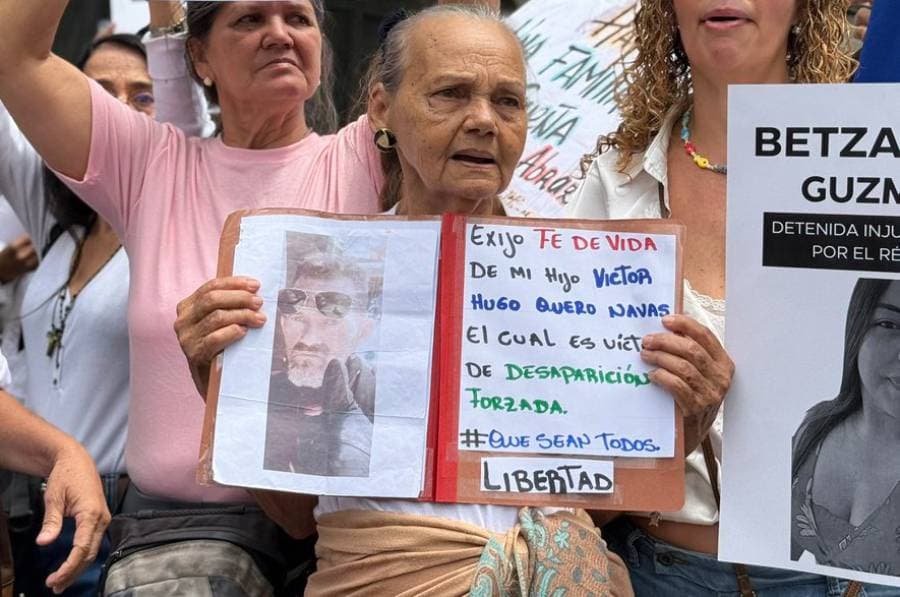 EXIJO FE DE VIDA
DE MI HIJO VICTOR
HUGO QUERO NAVAS
EL CUAL ES VÍCT
DE DESAPARICIÓN
FORZADA.
#QUE SEAN TODOS.
LIBERTAD
BETZA
GUZM
DETENIDA INJU
POR EL RÉ